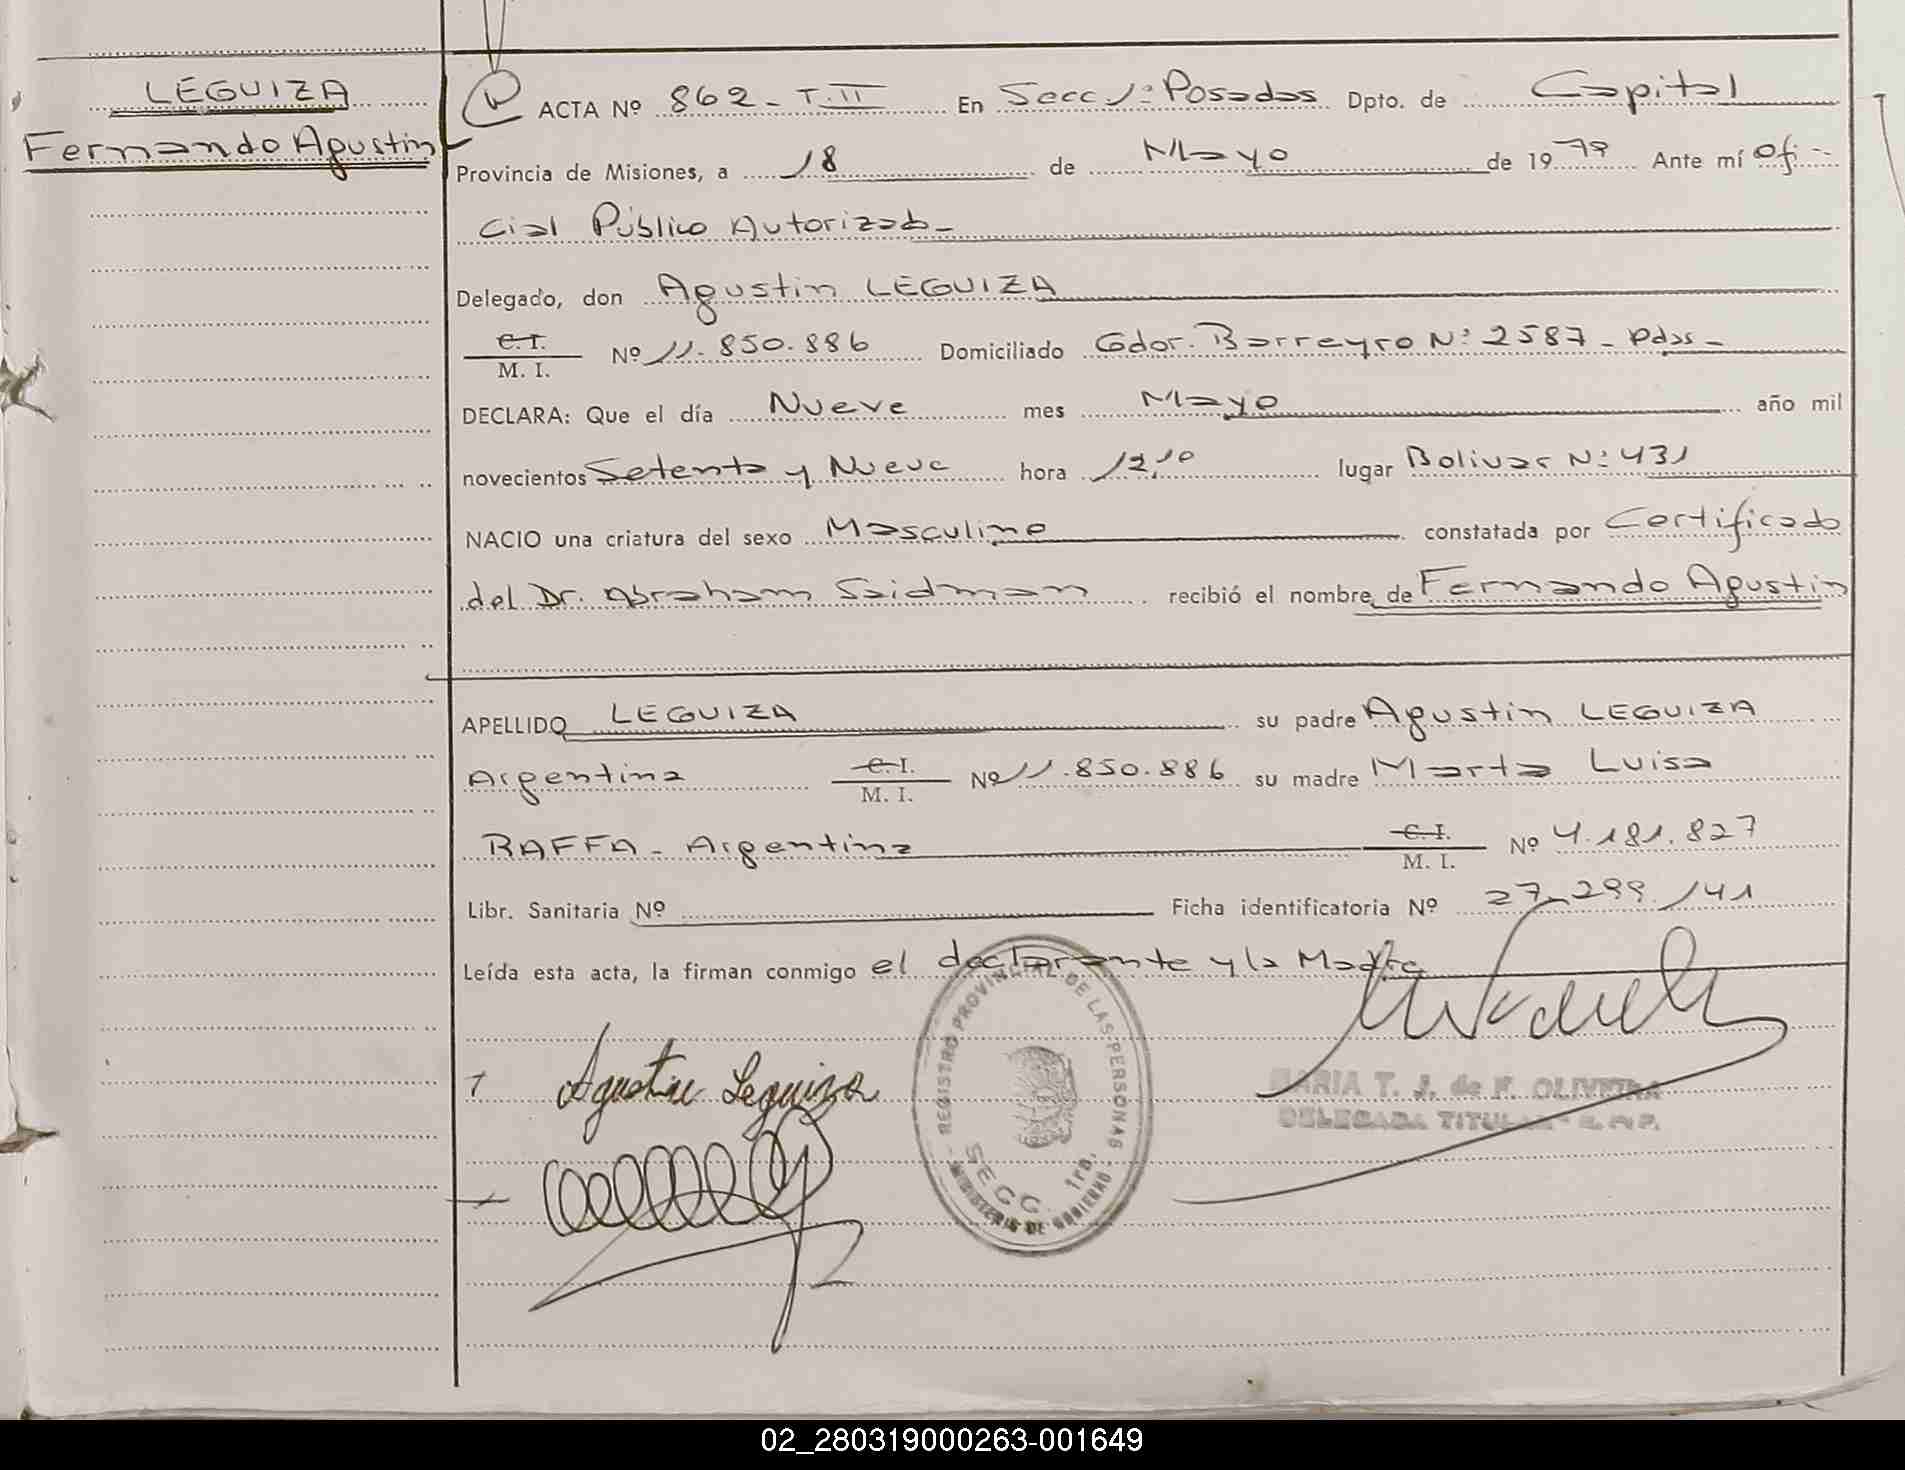 LEGUIZA
Fernando Agustin
ACTA Nº 862 - T. II En Secc 1º Posadas Dpto. de Capital
Provincia de Misiones, a 18 de Mayo de 1979 Ante mí Ofi-
cial Público Autorizado -
Delegado, don Agustin LEGUIZA
C.I.
M. I. Nº 11.850.886 Domiciliado Gdor. Barreyro Nº 2587 - Pdas -
DECLARA: Que el día Nueve mes Mayo año mil
novecientos Setenta y Nueve hora 12,10 lugar Bolivar Nº 431
NACIO una criatura del sexo Masculino constatada por Certificado
del Dr. Abraham Saidman recibió el nombre de Fernando Agustin
APELLIDO LEGUIZA su padre Agustin LEGUIZA
Argentina C.I. M. I. Nº 11.850.886 su madre Marta Luisa
RAFFA - Argentina C.I. M. I. Nº 4.181.827
Libr. Sanitaria Nº Ficha identificatoria Nº 27.299.141
Leída esta acta, la firman conmigo el declarante y la Madre
Agustin Leguiza
REGISTRO PROVINCIAL DE LAS PERSONAS
SECC. 1ra.
MINISTERIO DE GOBIERNO
MARIA T. J. de F. OLIVEIRA
DELEGADA TITULAR - R. P. P.
02_280319000263-001649